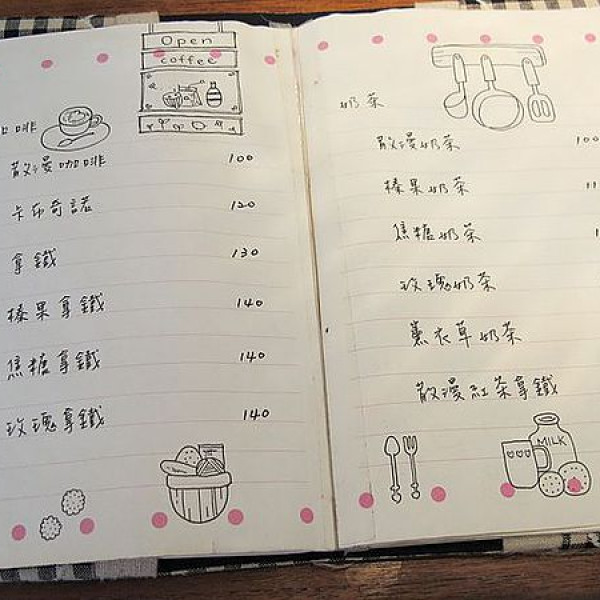 Open
coffee
咖啡
散漫咖啡 100
卡布奇諾 120
拿鐵 130
榛果拿鐵 140
焦糖拿鐵 140
玫瑰拿鐵 140
奶茶
散漫奶茶 100
榛果奶茶 11
焦糖奶茶 1
玫瑰奶茶
薰衣草奶茶
散漫紅茶拿鐵
MILK